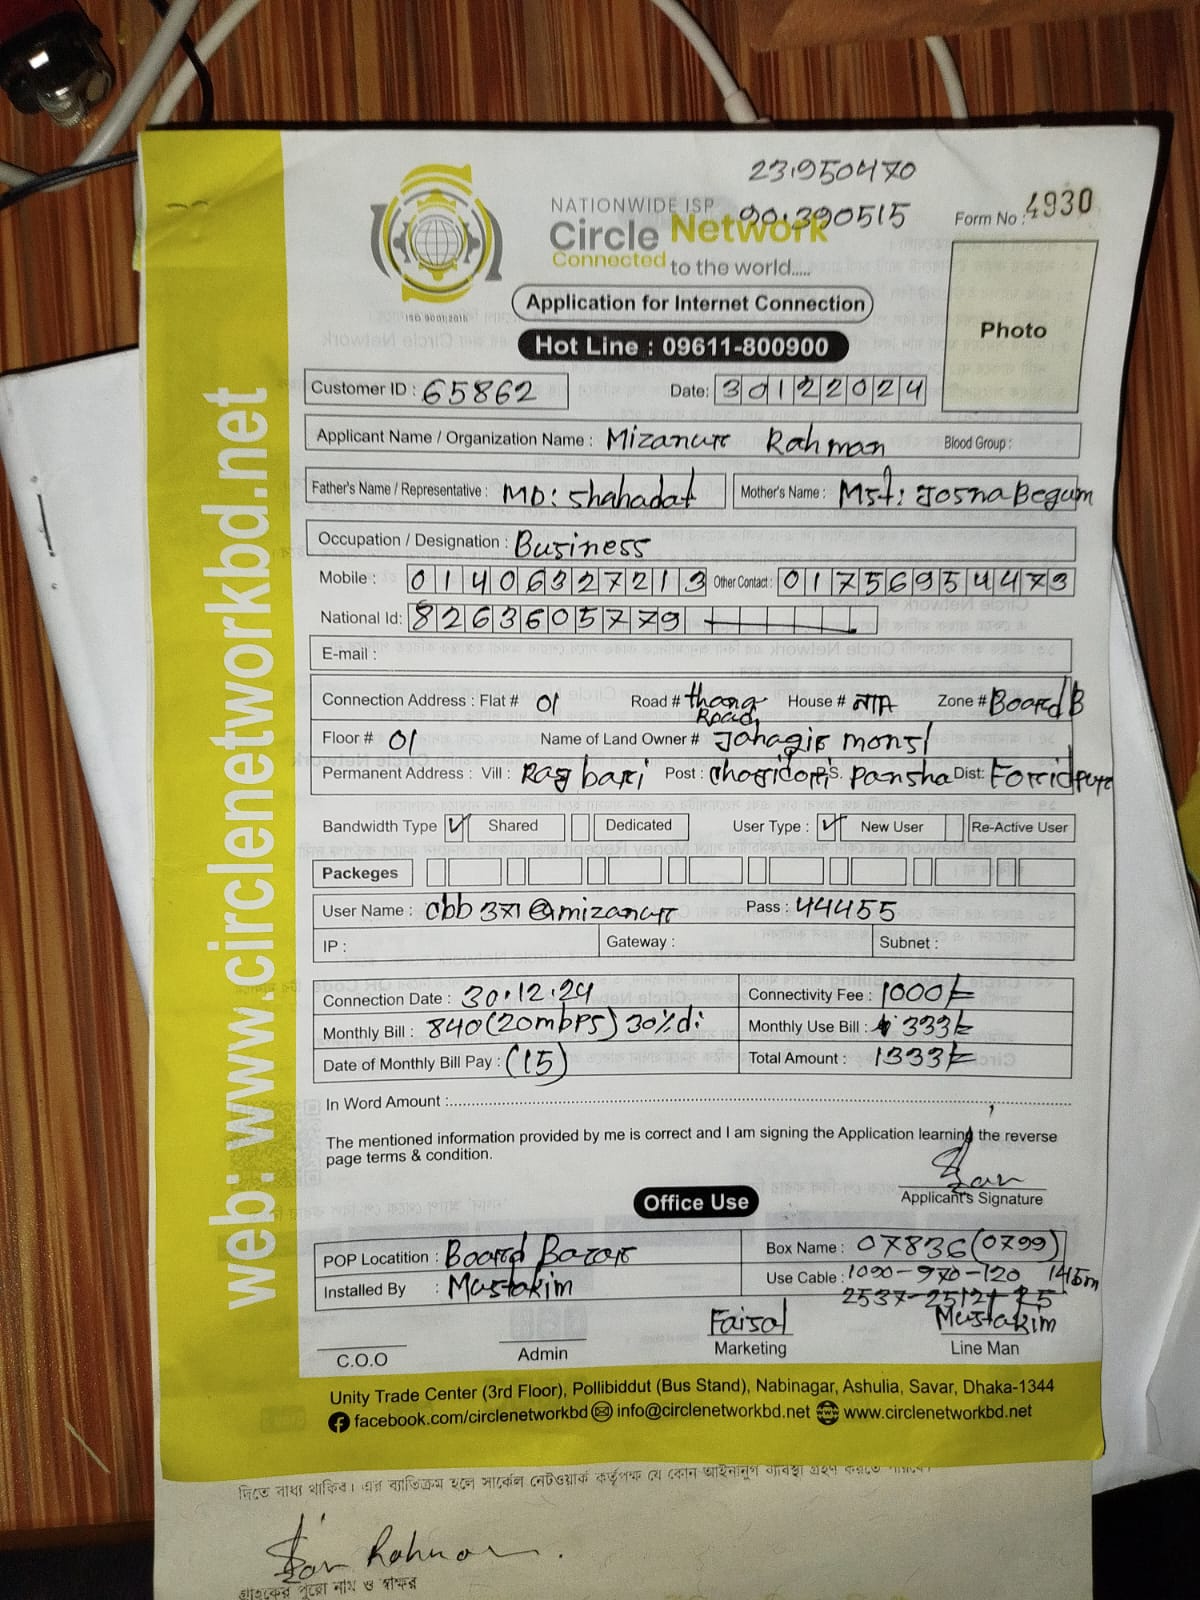 23.950470
90.390515
NATIONWIDE ISP
Circle Network
Connected to the world.....
ISO 9001:2015
Form No : 4930
Photo
Application for Internet Connection
Hot Line : 09611-800900
Customer ID : 65862 Date: 30122024
Applicant Name / Organization Name : Mizanur Rahman Blood Group :
Father's Name / Representative : MD: Shahadat Mother's Name : Mst: Josna Begum
Occupation / Designation : Business
Mobile : 01406327213 Other Contact : 01756954473
National Id: 8263605779
E-mail :
Connection Address : Flat # 01 Road # thana Road House # N/A Zone # Board B
Floor # 01 Name of Land Owner # Jahagir monsi
Permanent Address : Vill : Raj bari Post : P.S. Pansha Dist: Foridpur
Bandwidth Type Shared Dedicated User Type : New User Re-Active User
Packeges
User Name : cbb371@mizanur Pass : 44455
IP : Gateway : Subnet :
Connection Date : 30.12.24 Connectivity Fee : 1000/=
Monthly Bill : 840(20mbps) 30% di: Monthly Use Bill : 333/=
Date of Monthly Bill Pay : (15) Total Amount : 1333/=
In Word Amount :
The mentioned information provided by me is correct and I am signing the Application learning the reverse
page terms & condition.
Applicant's Signature
Office Use
POP Locatition : Board Bazar Box Name : 07836(0799)
Installed By : Mustakim Use Cable : 1090-970-120 145m
2537-2512+25
Faisal Mustakim
C.O.O Admin Marketing Line Man
Unity Trade Center (3rd Floor), Pollibiddut (Bus Stand), Nabinagar, Ashulia, Savar, Dhaka-1344
facebook.com/circlenetworkbd info@circlenetworkbd.net www.circlenetworkbd.net
web: www.circlenetworkbd.net
দিতে বাধ্য থাকিব। এর ব্যতিক্রম হলে সার্কেল নেটওয়ার্ক কর্তৃপক্ষ যে কোন আইনানুগ ব্যবস্থা গ্রহণ করতে পারবে।
Rahman
গ্রাহকের পুরো নাম ও স্বাক্ষর